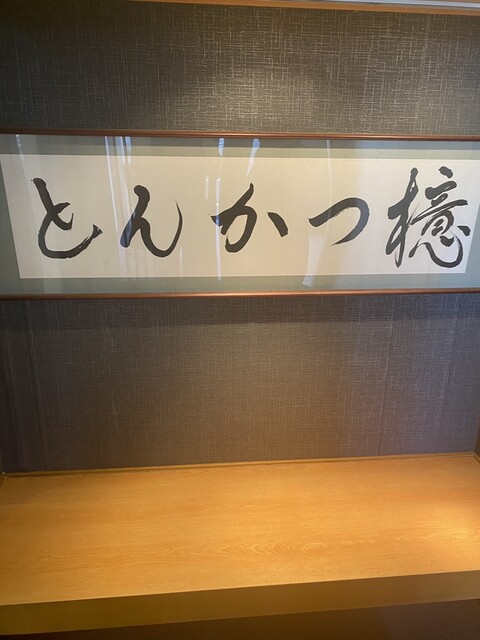 とんかつ檍